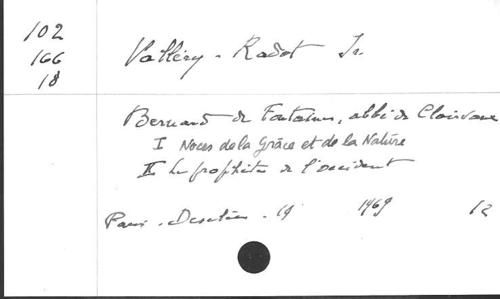 102
166
18
Valléry - Radot Ir.
Bernard de Fontaines, abbé de Clairvaux
I Noces de la Grâce et de la Nature
II Le prophète de l'occident
Paris - Desclée - 19 1969 12